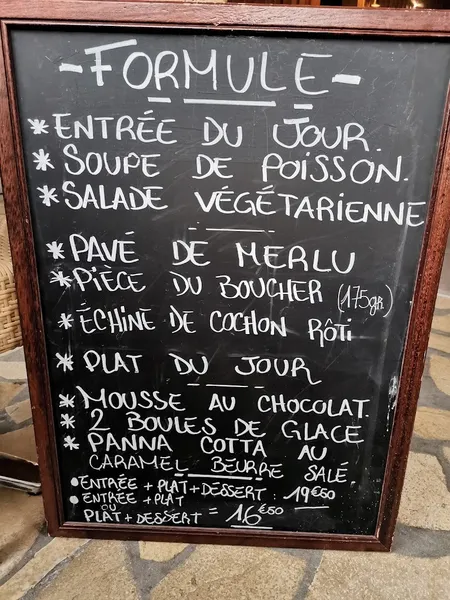 -FORMULE-
* ENTRÉE DU JOUR.
* SOUPE DE POISSON.
* SALADE VÉGÉTARIENNE
* PAVÉ DE MERLU
* PIÈCE DU BOUCHER (175gr)
* ÉCHINE DE COCHON RÔTi
* PLAT DU JOUR
* MOUSSE AU CHOCOLAT.
* 2 BOULES DE GLACE
* PANNA COTTA AU
CARAMEL BEURRE SALÉ.
• ENTRÉE + PLAT + DESSERT : 19€50
• ENTRÉE + PLAT
OU
PLAT + DESSERT = 16€50